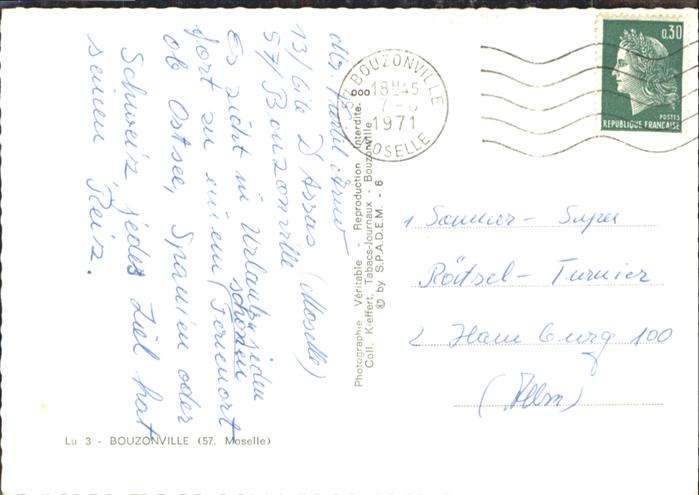 Mr.
13/Cité D'Assas (Moselle)
57/Bouzonville
Es zieht in Urlaubsiden
fort zu einem schönen Ferienort
ob Ostsee, Spanien oder
Schweiz jedes Ziel hat
seinen Reiz.
BOUZONVILLE
18H45
7-6
1971
MOSELLE
0,30
POSTES
REPUBLIQUE FRANCAISE
Photographie Véritable - Reproduction Interdite.
Coll. Kieffert, Tabacs-Journaux - Bouzonville.
© by S.P.A.D.E.M. - 6
1 Sommer - Super
Rätsel - Turnier
2 Hamburg 100
Lu 3 - BOUZONVILLE (57. Moselle)